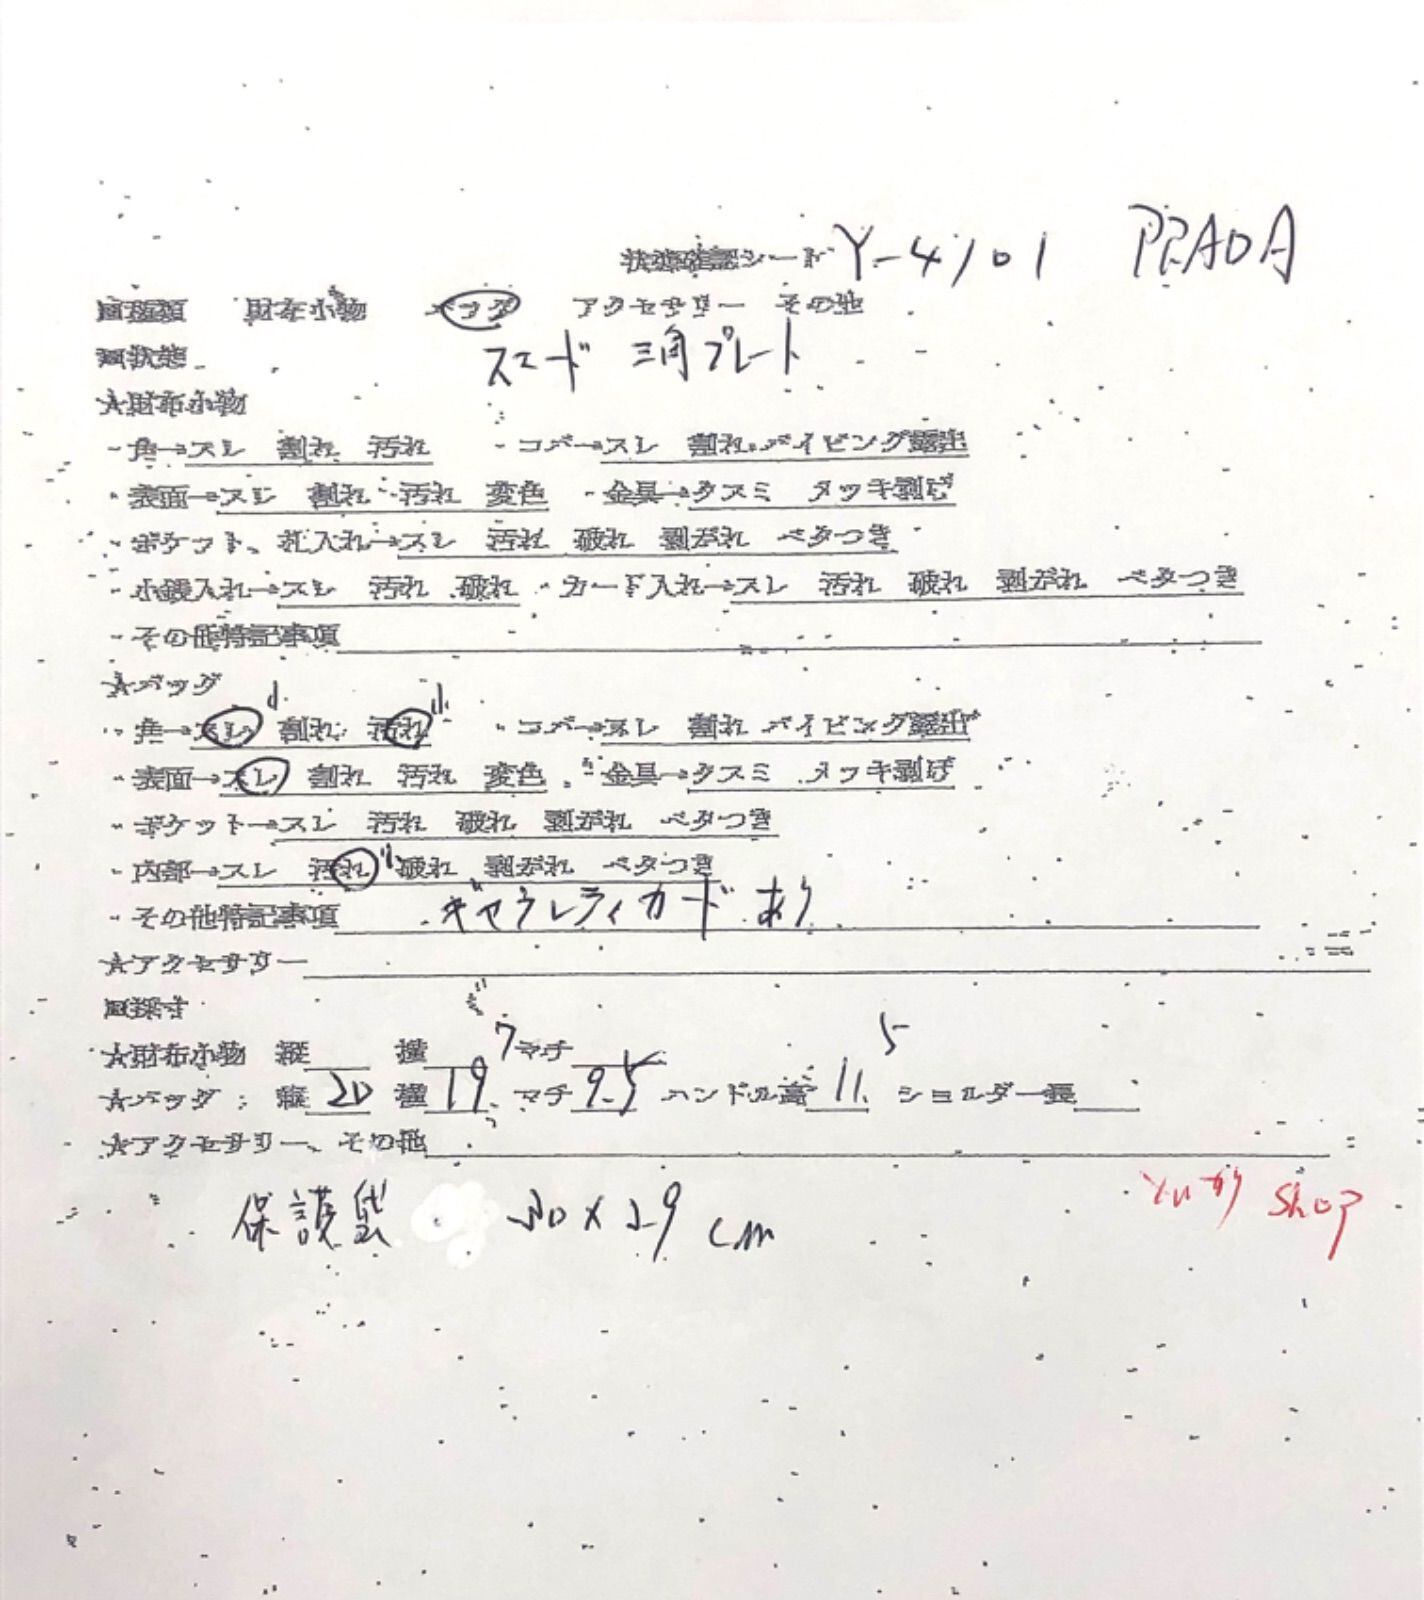 状態確認シート Y-4101 PRADA
■種類 財布小物 バッグ アクセサリー その他
■状態 スエード 三角プレート
★財布小物
・角→スレ 割れ 汚れ ・コバ→スレ 割れ パイピング露出
・表面→スレ 割れ 汚れ 変色 ・金具→クスミ メッキ剥げ
・ポケット、札入れ→スレ 汚れ 破れ 剥がれ ベタつき
・小銭入れ→スレ 汚れ 破れ ・カード入れ→スレ 汚れ 破れ 剥がれ ベタつき
・その他特記事項
★バッグ
・角→スレ 小 割れ 汚れ 小 ・コバ→スレ 割れ パイピング露出
・表面→スレ 割れ 汚れ 変色 ・金具→クスミ メッキ剥げ
・ポケット→スレ 汚れ 破れ 剥がれ ベタつき
・内部→スレ 汚れ 小 破れ 剥がれ ベタつき
・その他特記事項 ギャランティカード あり
★アクセサリー
■採寸
★財布小物 縦 横 7 マチ 5
★バッグ:縦 20 横 19 マチ 9.5 ハンドル高 11. ショルダー長
★アクセサリー、その他
保護袋 30×29 cm
shop